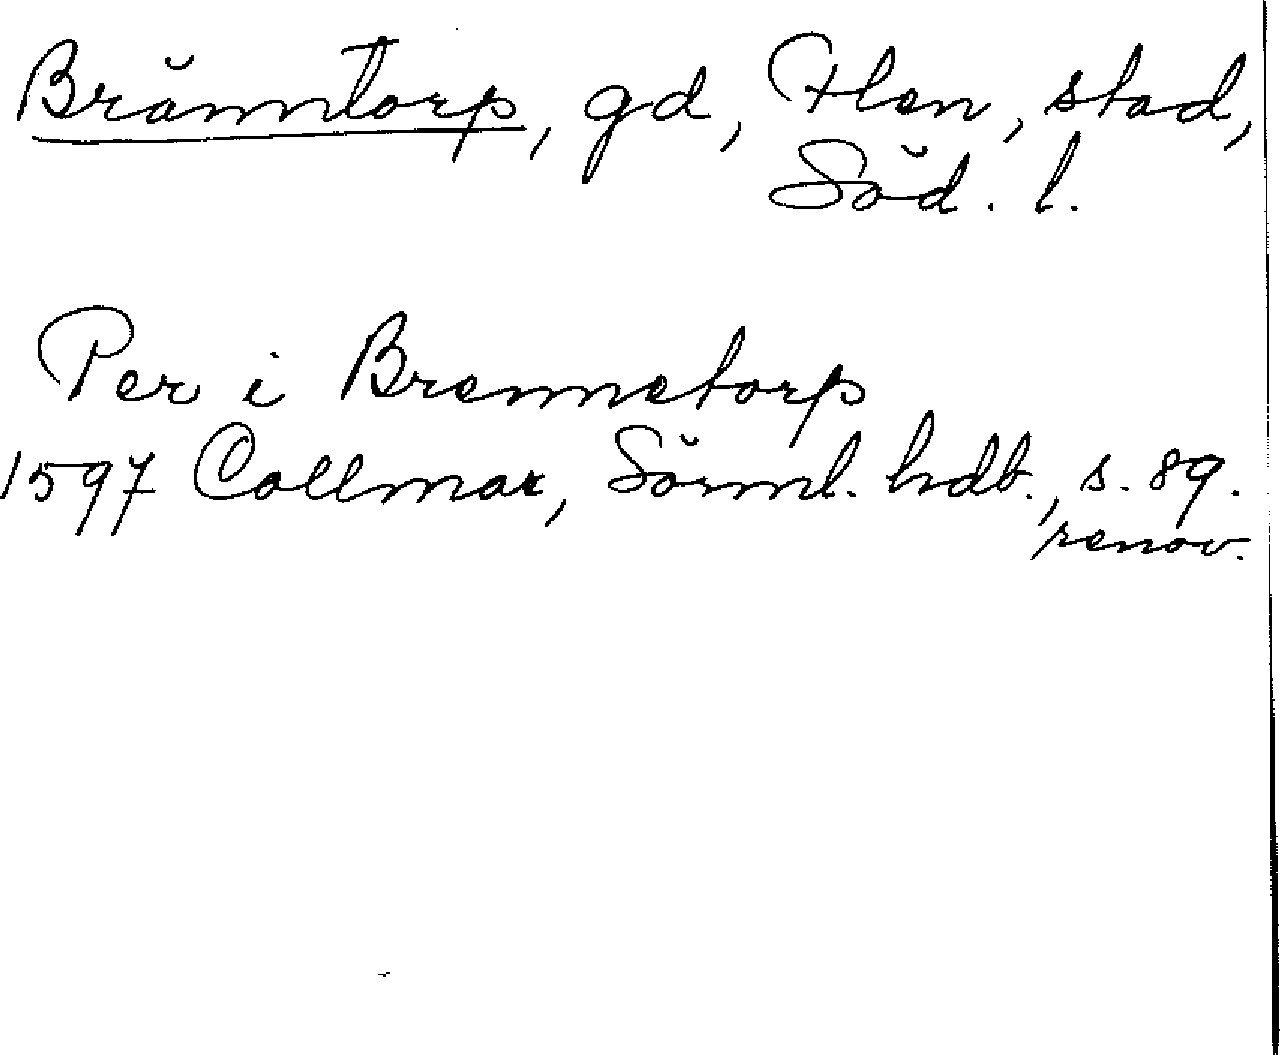 Bränntorp, gd, Flen, stad,
Söd. l.
Per i Brennetorp
1597 Collmar, Sörml. hdb., s. 89.
renov.